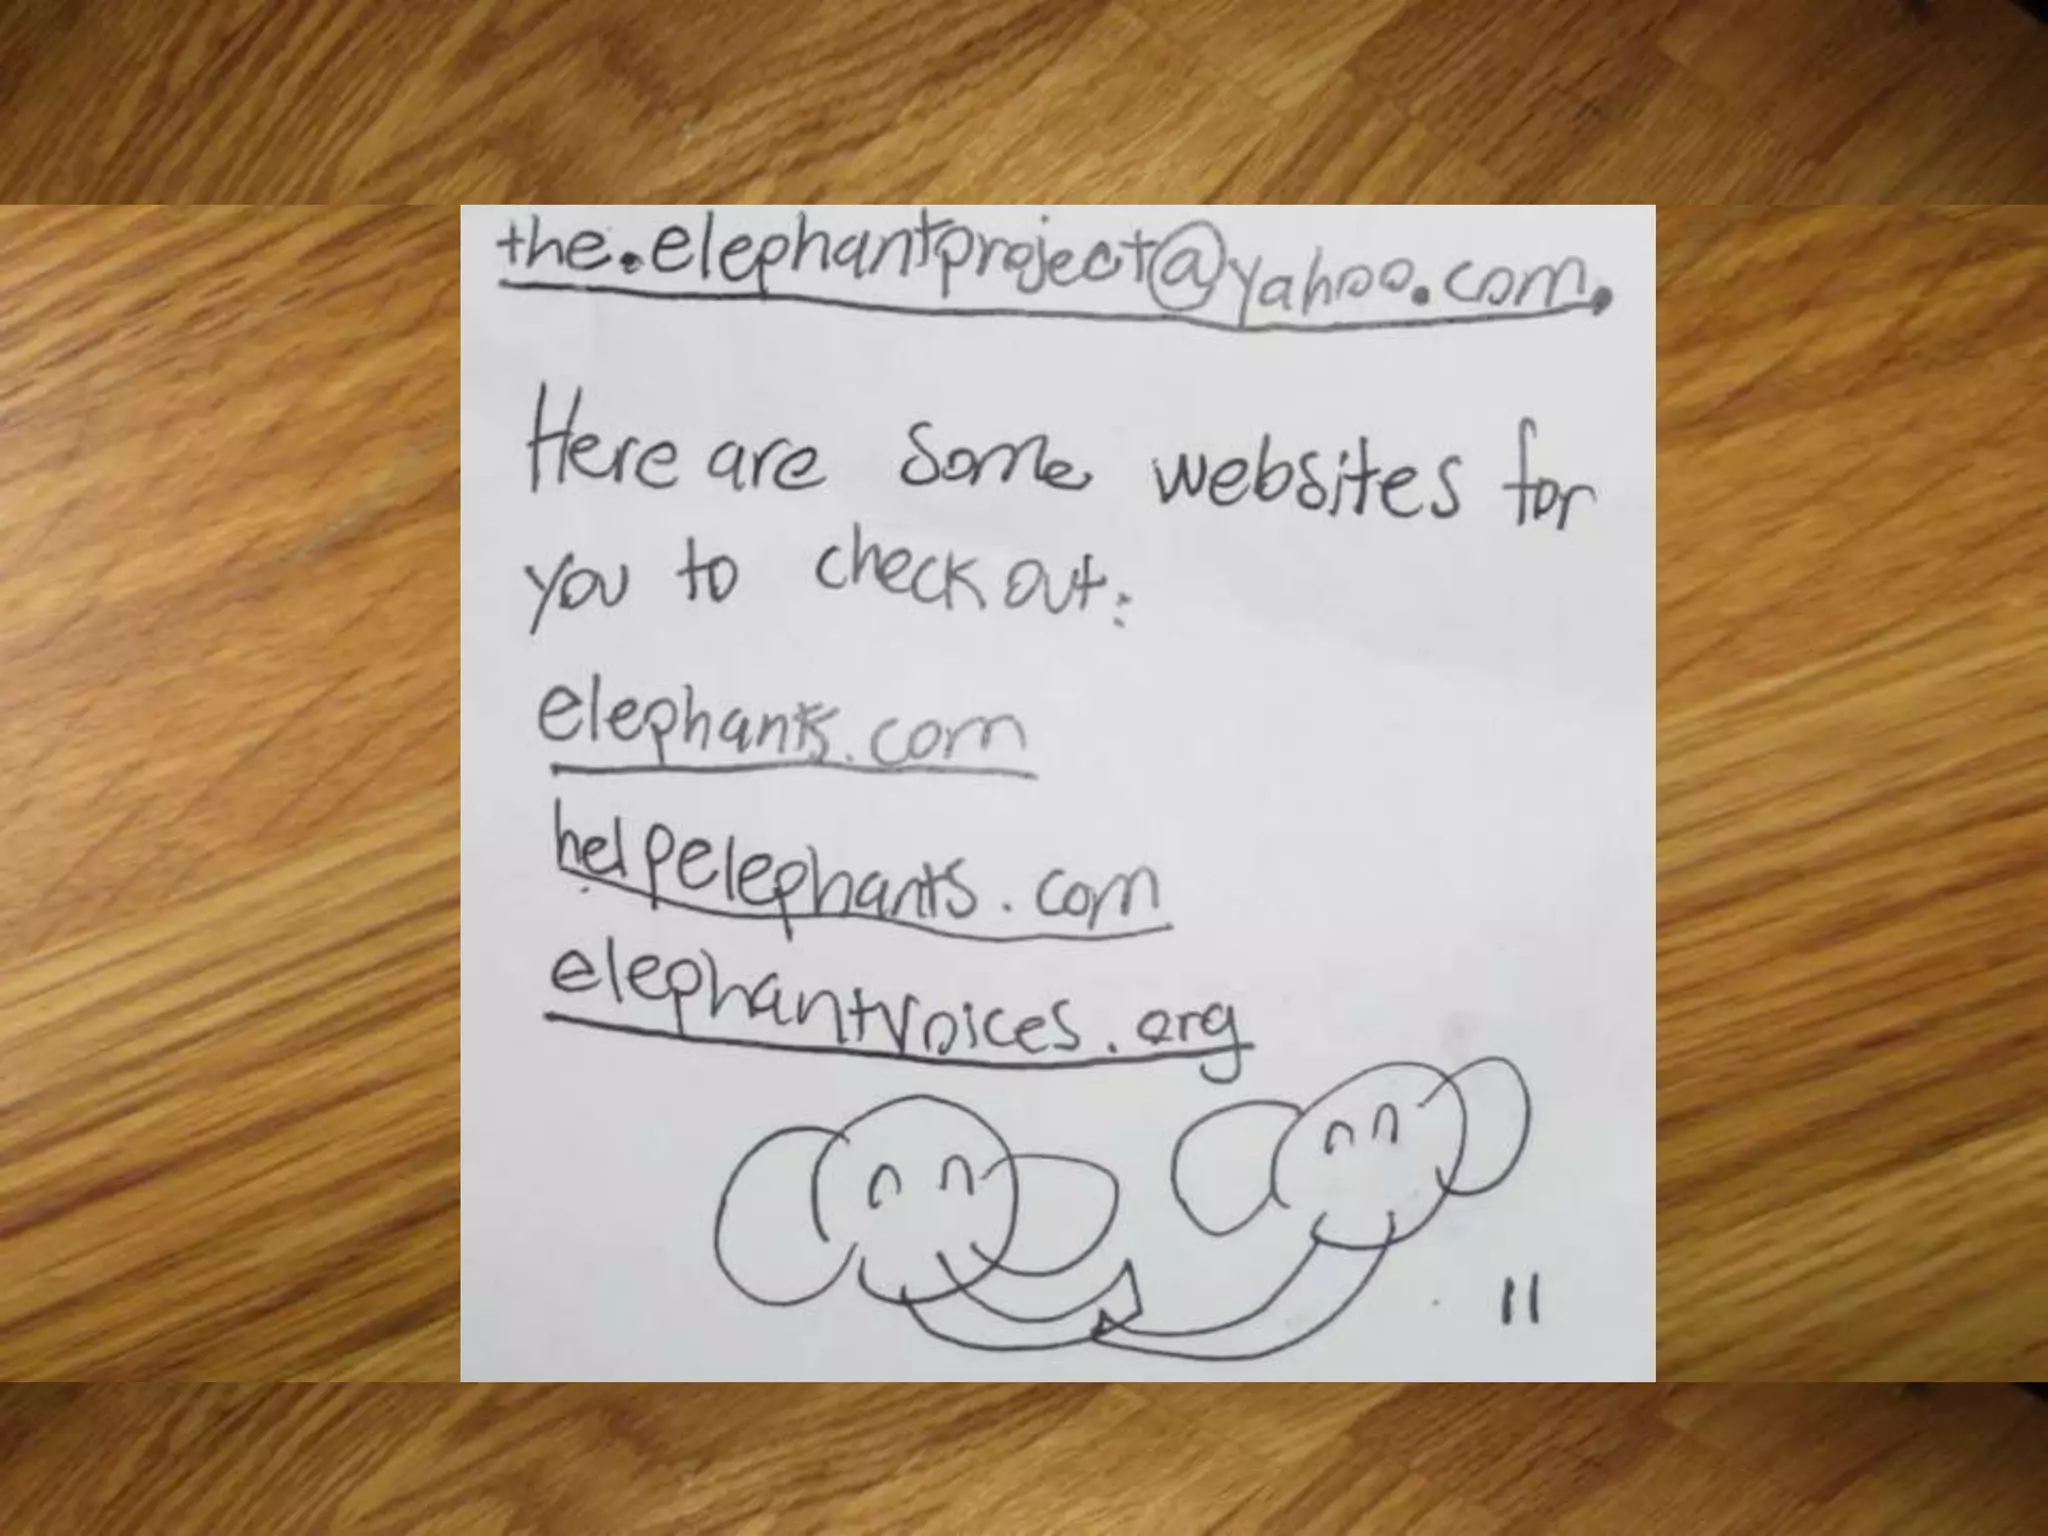 the.elephantproject@yahoo.com.
Here are some websites for
you to check out:
elephants.com
helpelephants.com
elephantvoices.org
11